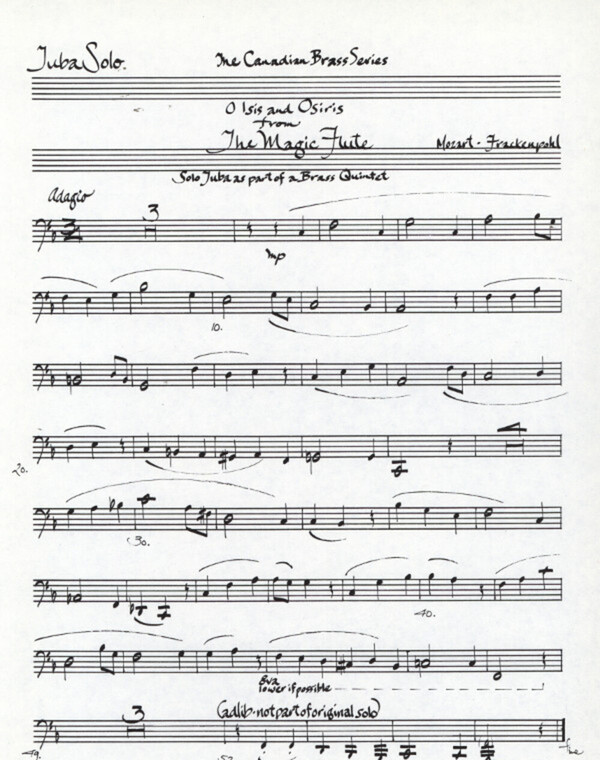 Tuba Solo.
The Canadian Brass Series
O Isis and Osiris
from
The Magic Flute
Mozart - Frackenpohl
Solo Tuba as part of a Brass Quintet
Adagio
3
mp
10.
20.
30.
40.
8va
lower if possible
(adlib - not part of original solo)
3
49.
fine